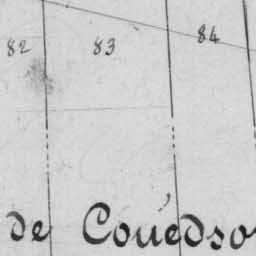 82 83 84
de Couédso